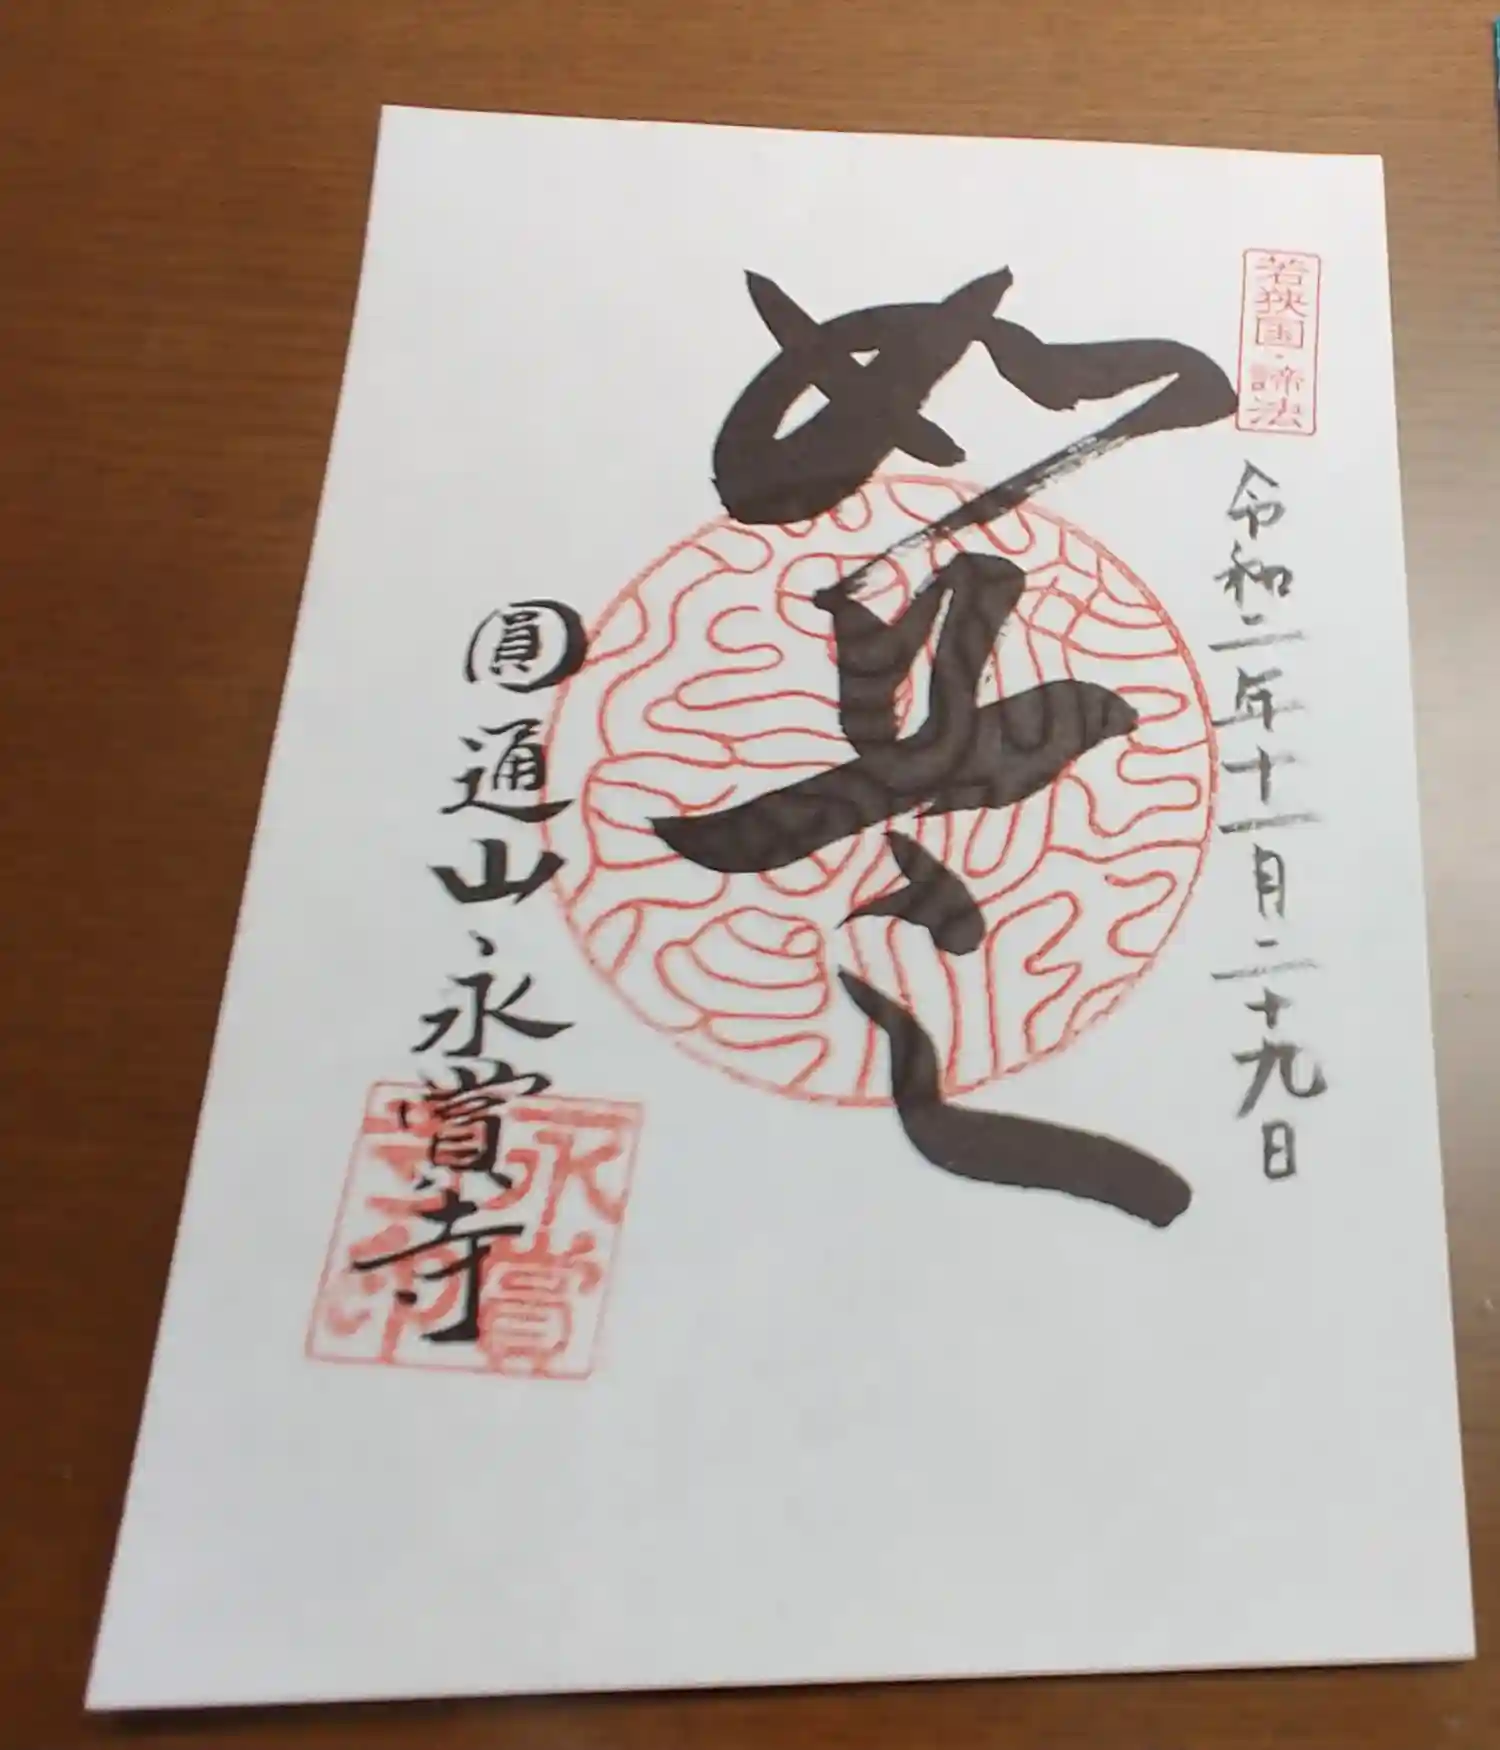 若狭国・諦法
令和二年十一月二十九日
如是
圓通山永賞寺
永賞寺印